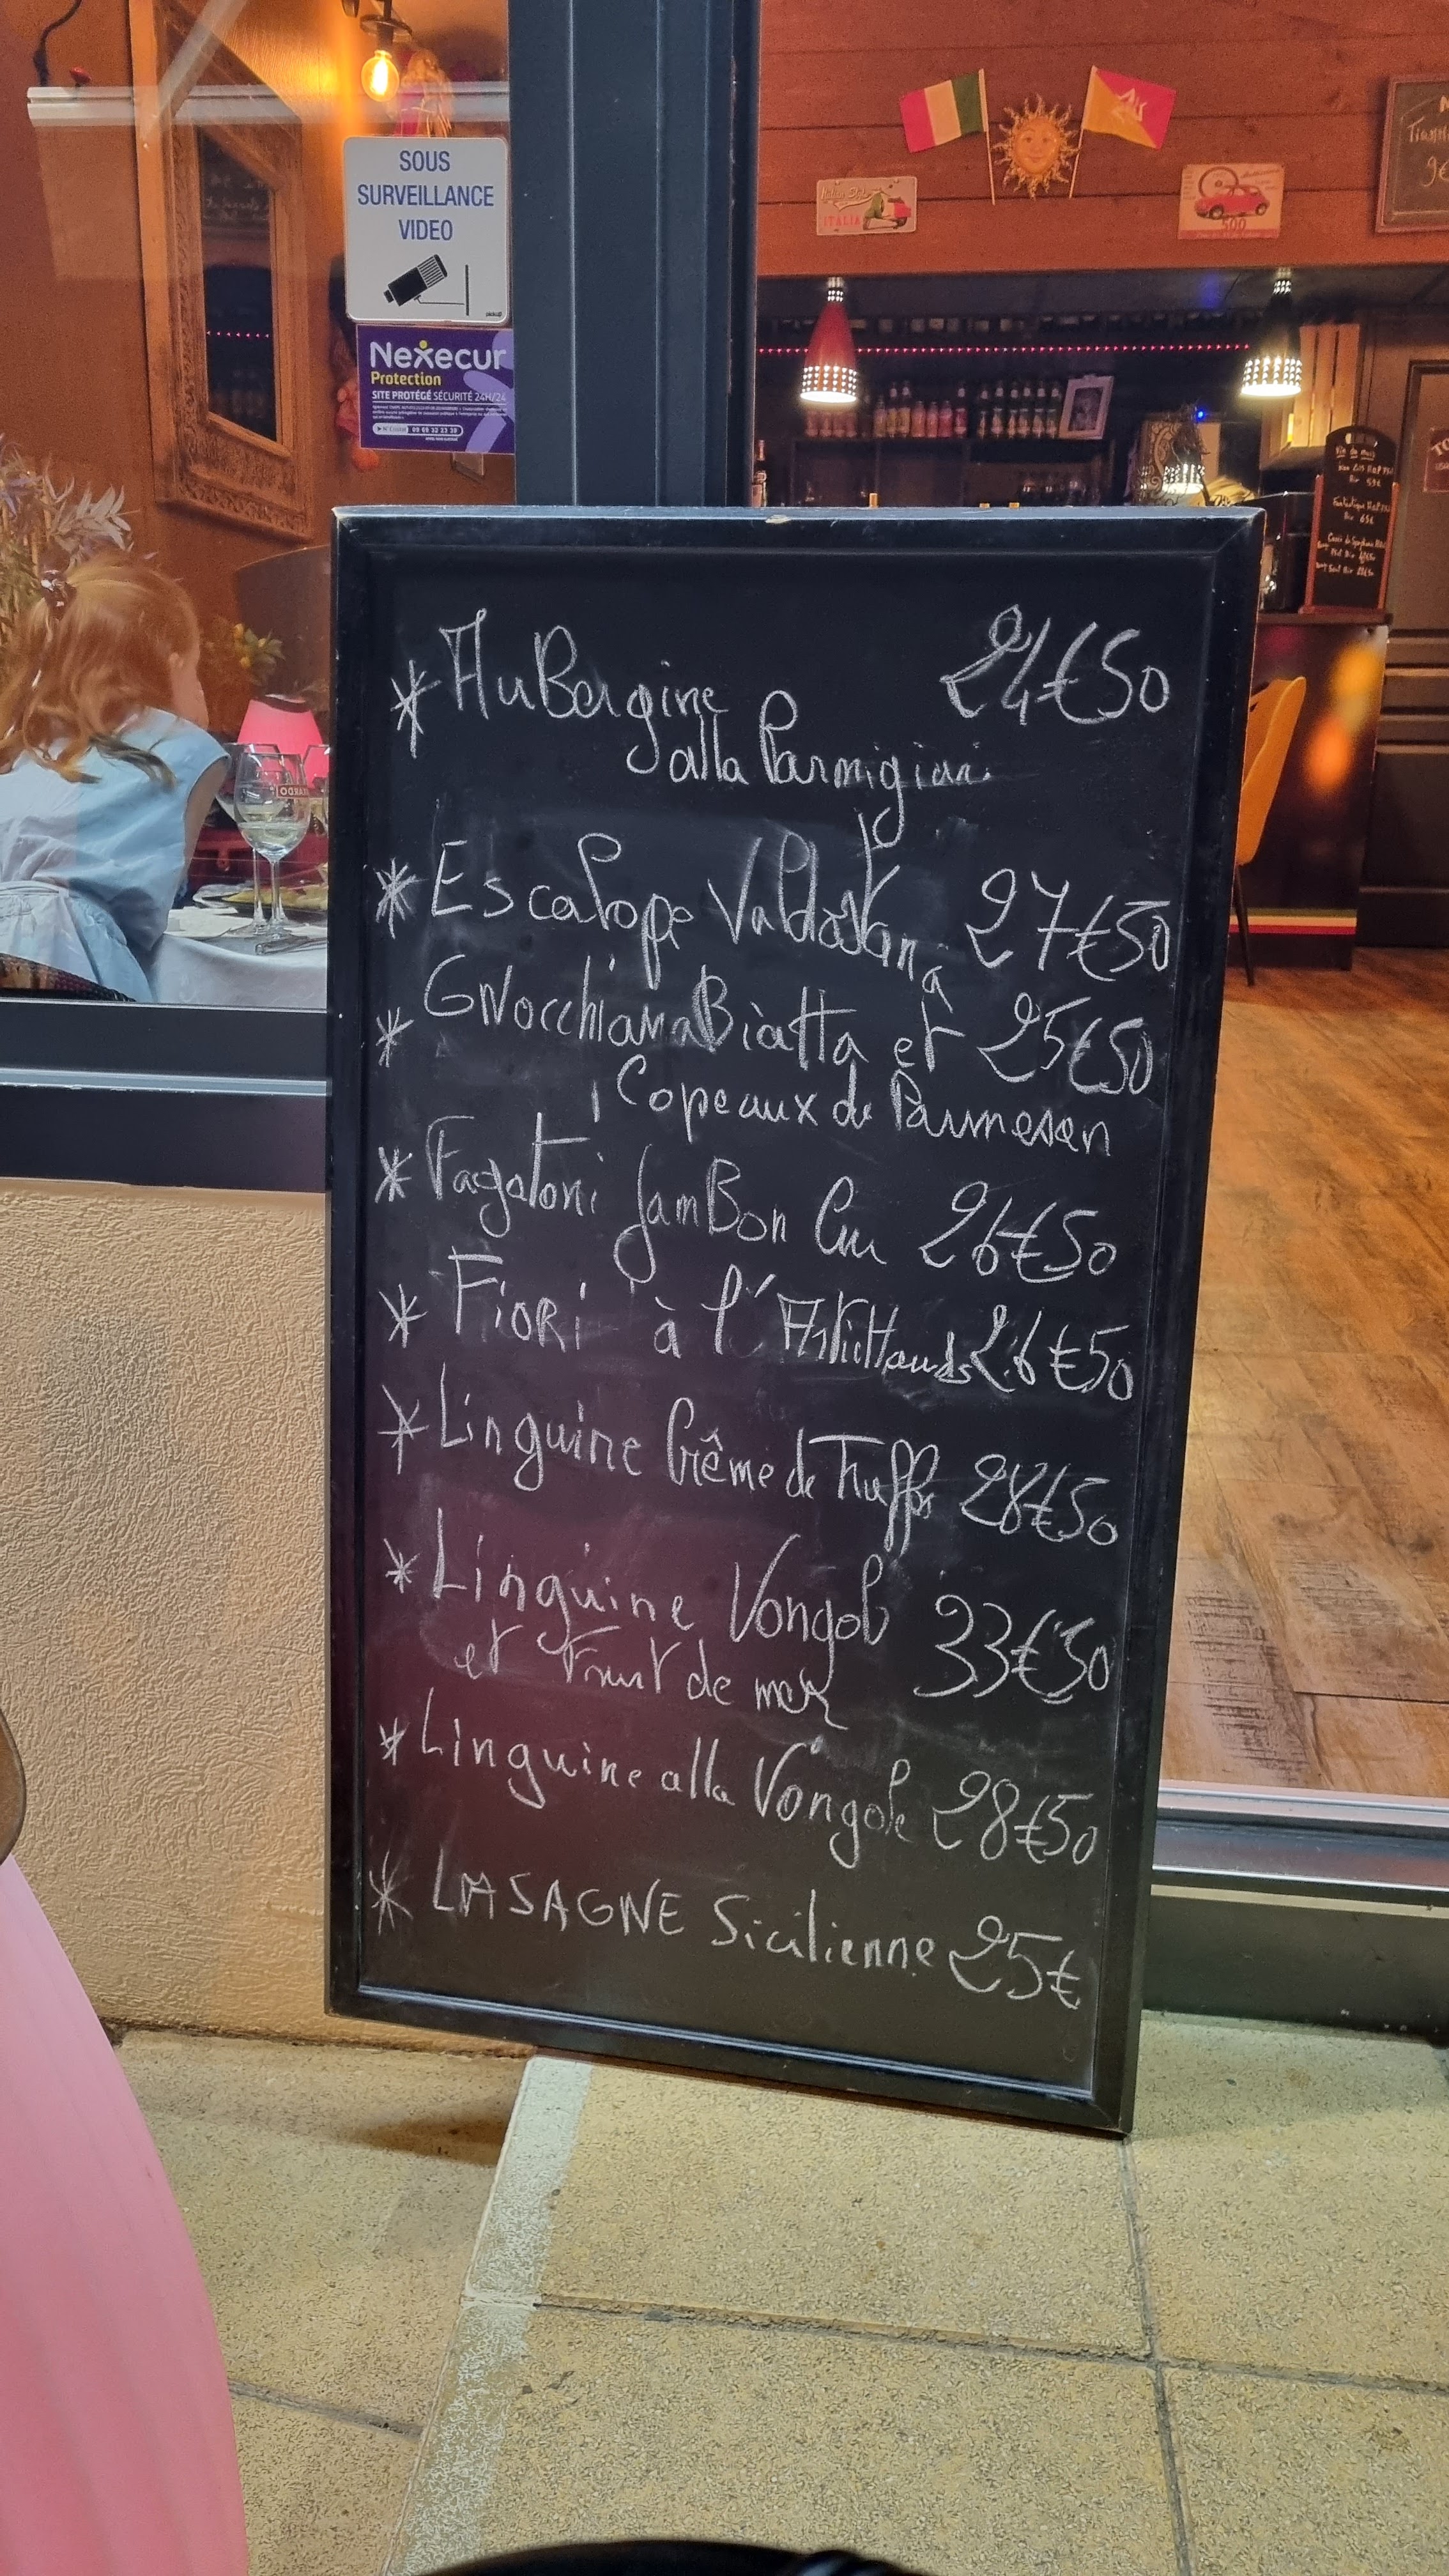 SOUS
SURVEILLANCE
VIDEO
Nexecur
Protection
SITE PROTÉGÉ SÉCURITÉ 24H/24
ITALIA
500
* AuBergine 24€50
alla Parmigiana
* Escalope Valdostana 27€50
* GNocchi aRRaBiatta et 25€50
Copeaux de Parmesan
* Fagotoni JamBon Cru 26€50
* FioRi à l'Artichauds 26€50
* Linguine Crème de Truffes 28€50
* Linguine Vongole 33€50
et Fruit de meR
* Linguine alla Vongole 28€50
* LASAGNE Sicilienne 25€